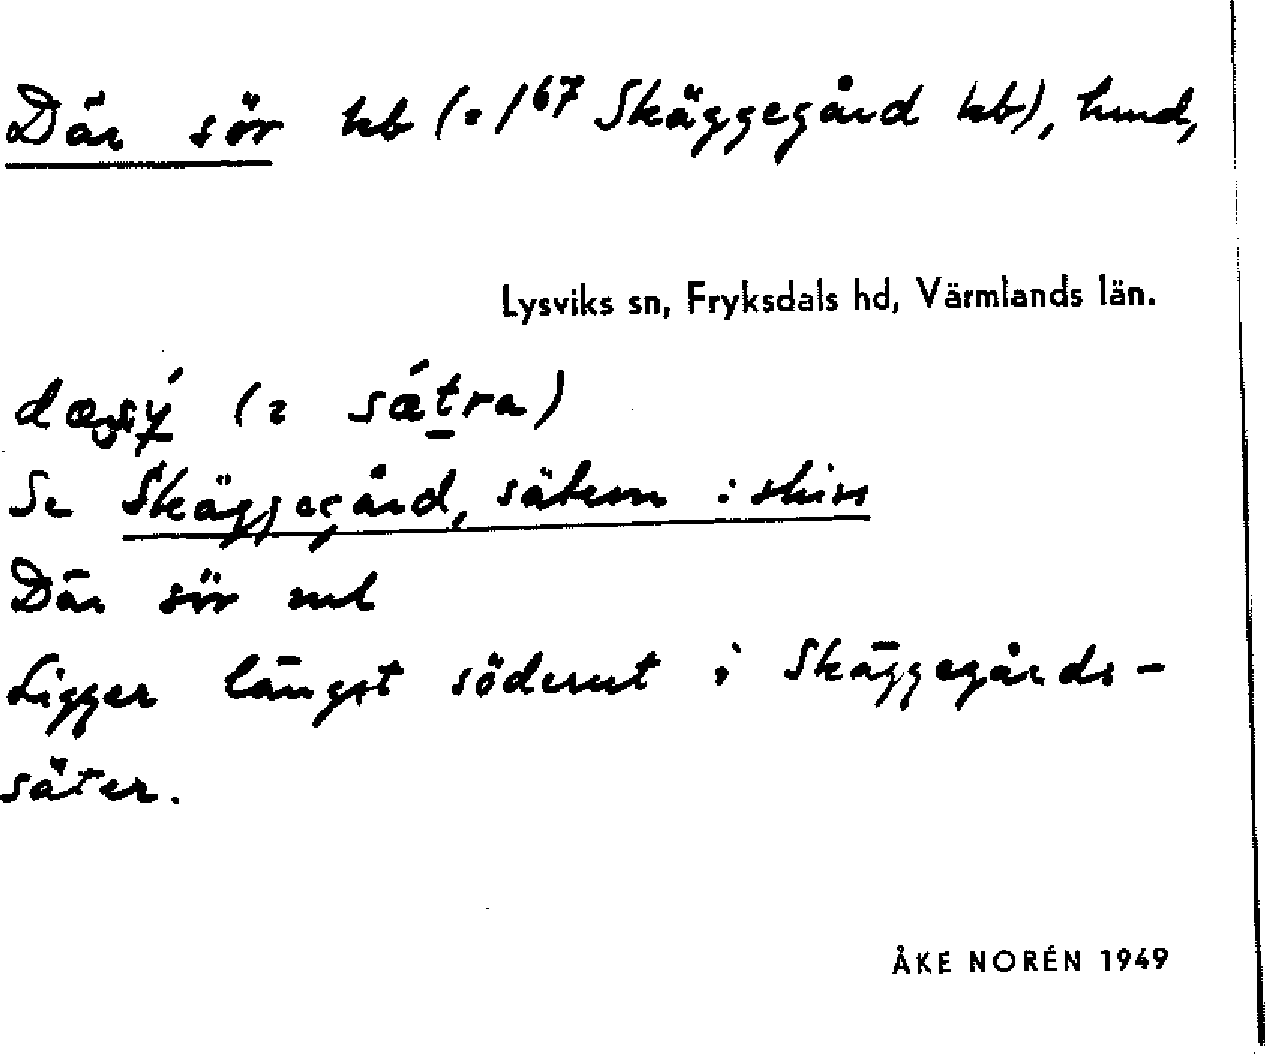 Där sör hb (= 1⁶⁷ Skäggegård hb), hmd,
Lysviks sn, Fryksdals hd, Värmlands län.
(= sá̱tra)
Se Skäggegård, sätern :
Där sör
Ligger längst söderut i Skäggegårds-
säter.
ÅKE NORÉN 1949